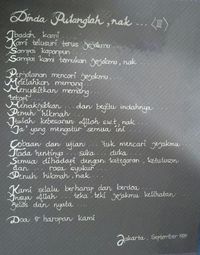 Dinda Pulanglah, nak ... (III)
Ibadah kami ...
Kami telusuri terus jejakmu ...
Sampai kapanpun ...
Sampai kami temukan jejakmu, nak ...
Perjalanan mencari jejakmu ...
Melelahkan memang
Menyakitkan memang
tetapi
Menakjubkan ... dan begitu indahnya
Penuh hikmah ...
Itulah kebesaran Allah swt, nak ...
"Ia" yang mengatur semua ini
Cobaan dan ujian ... 'tuk mencari jejakmu
Tiada hentinya ... suka ... duka
Semua dihadapi dengan ketegaran, ketulusan
dan ... rasa syukur ...
Penuh hikmah, nak ...
Kami selalu berharap dan berdoa ...
Insya Allah ... teka teki jejakmu kelihatan
Jelas dan nyata ...
Doa & harapan kami
Jakarta, September